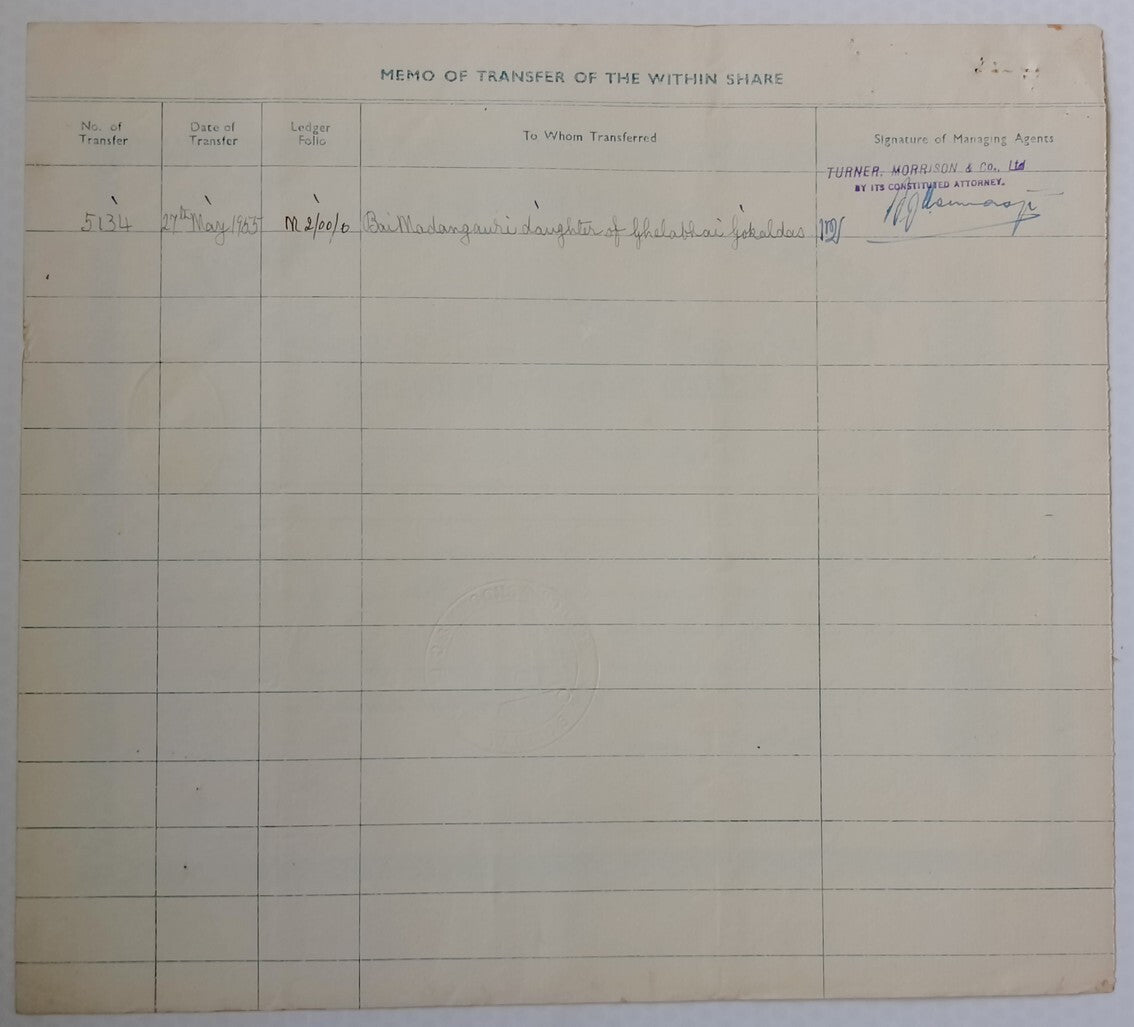 MEMO OF TRANSFER OF THE WITHIN SHARE
No. of Transfer
Date of Transfer
Ledger Folio
To Whom Transferred
Signature of Managing Agents
TURNER, MORRISON & Co., Ltd
BY ITS CONSTITUTED ATTORNEY.
5134 27th May 1955 M 2/00/6 Bai Madangauri daughter of Ghelabhai Gokaldas